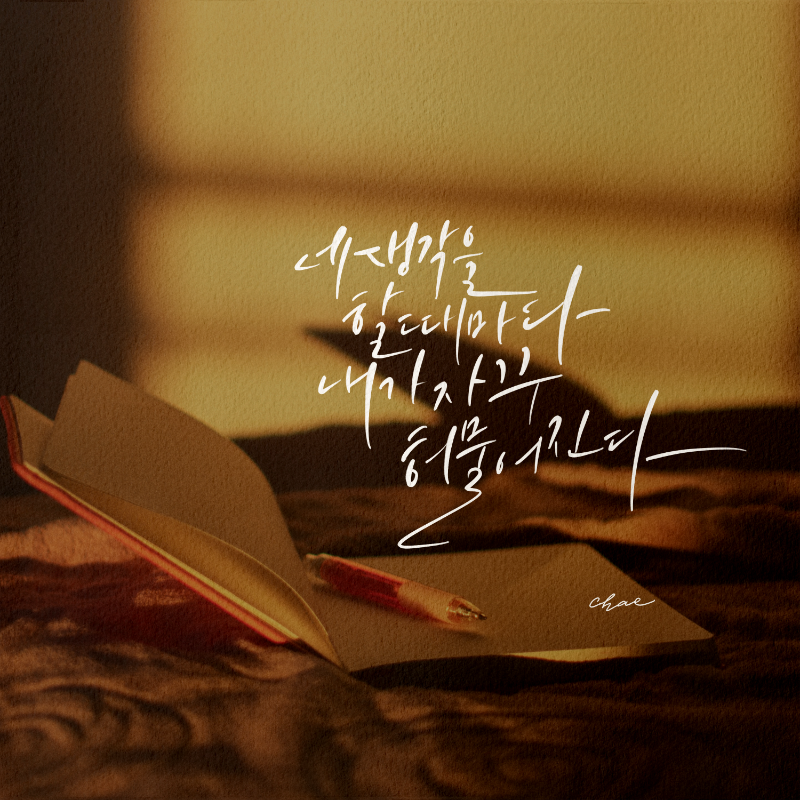 네 생각을
할 때마다
내가 자꾸
허물어진다
chae